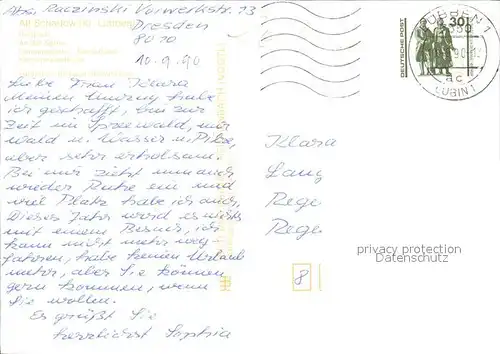 Abs. Raczinski Vorwerkstr. 13
Dresden
8010
10.9.90
Liebe Frau Klara
Meinen Umzug habe
ich geschafft, bin zur
Zeit im Spreewald, nur
Wald u. Wasser u. Pilze,
aber sehr erholsam.
Bei mir zieht nun auch
wieder Ruhe ein und
viel Platz habe ich auch,
dieses Jahr wird es nichts
mit einem Besuch, ich
kann nicht mehr weg-
fahren, habe keinen Urlaub
mehr, aber Sie können
gern kommen, wenn
Sie wollen.
Es grüßt Sie
herzlichst Sophia
DEUTSCHE POST
30
LÜBBEN 1
ac
LUBIN 1
Klara
Lang
Rege
Rege
privacy protection
Datenschutz
8